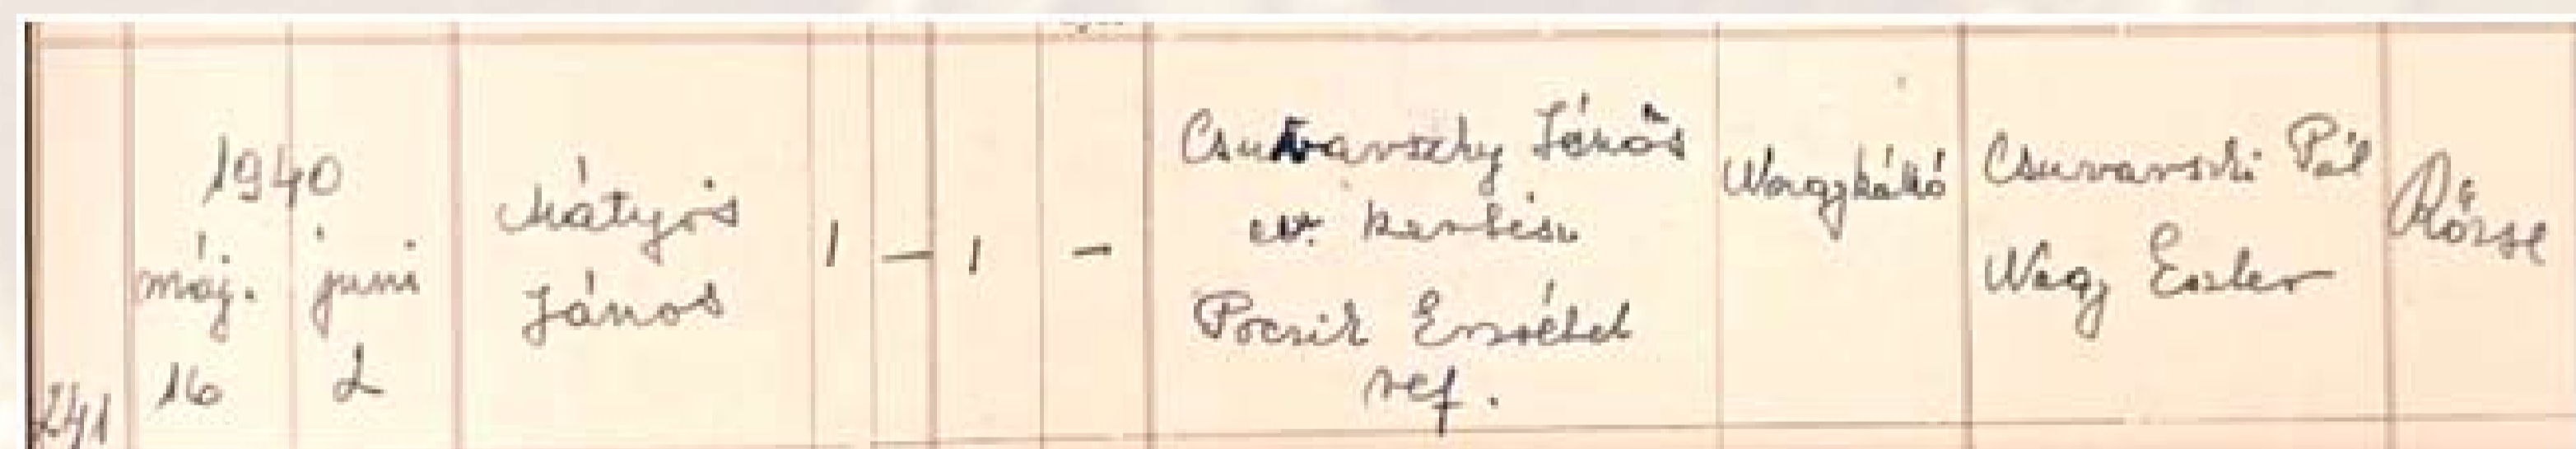 241
1940
máj. 16
juni 2
Mátyás
János
1 — 1 —
Csuvarszky János
ev. kertész
Pocsik Erzsébet
ref.
Nagykálló
Csuvarszki Pál
Nagy Eszter